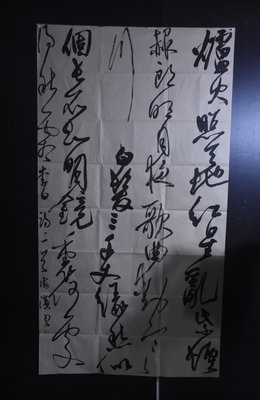 爐火照天地紅星亂紫煙
赧郎明月夜歌曲動寒
川
白髮三千丈緣愁似
個長不知明鏡裏何處
得秋霜李白詩二首